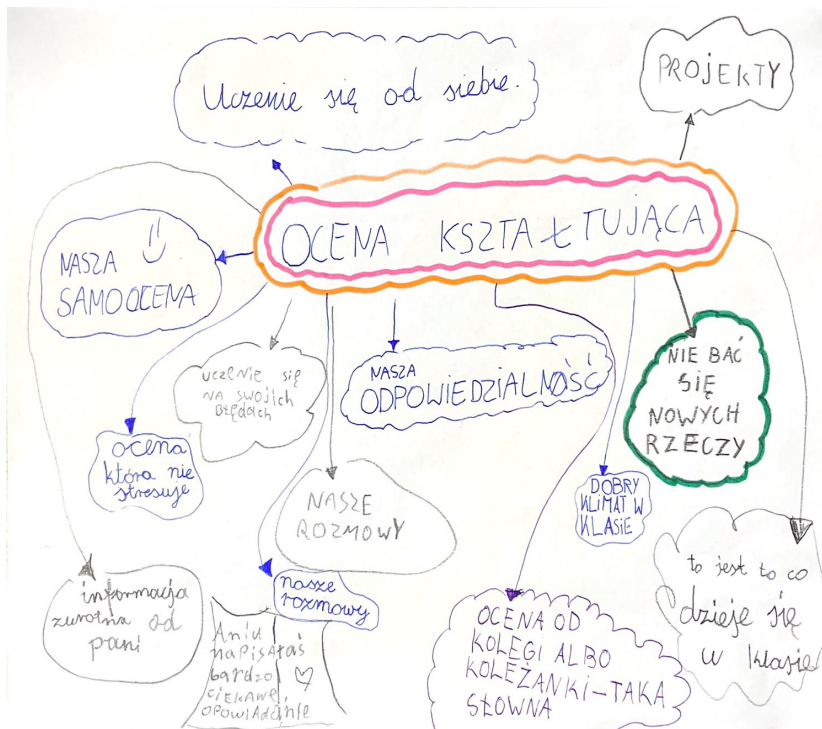 Uczenie się od siebie.
PROJEKTY
OCENA KSZTAŁTUJĄCA
NASZA
SAMOOCENA
uczenie się
NA SWOICH
BŁĘDACH
NASZA
ODPOWIEDZIALNOŚĆ
NIE BAĆ
SIĘ
NOWYCH
RZECZY
ocena
która nie
stresuje
NASZE
ROZMOWY
DOBRY
KLIMAT W
KLASIE
to jest to co
dzieje się
w klasie
informacja
zwrotna od
pani
nasze
rozmowy
Aniu
naPisAłaś
bardzo
ciekawe
opowiadanie
OCENA OD
KOLEGI ALBO
KOLEŻANKI-TAKA
SŁOWNA